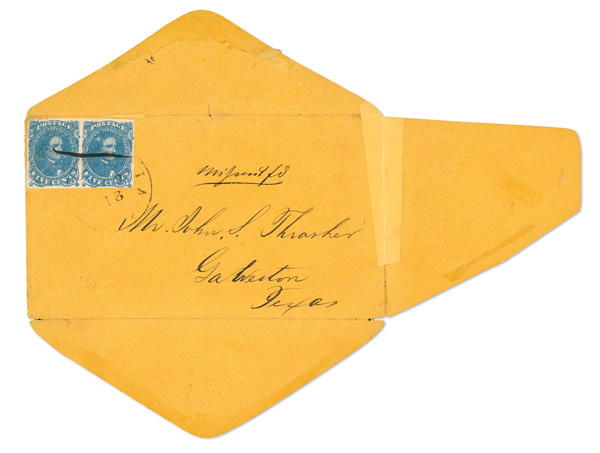 POSTAGE POSTAGE
FIVE CENTS FIVE CENTS
13
TA
missent fd
Mr. John. S. Thrasher
Galveston
Texas